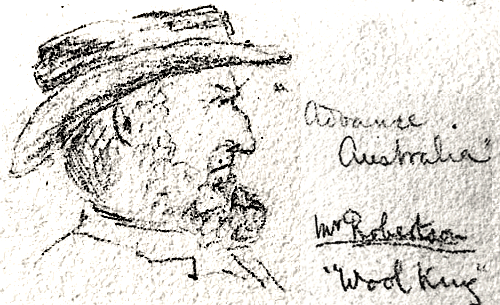 Advance.
Australia"
Mr Robertson
"Wool King"